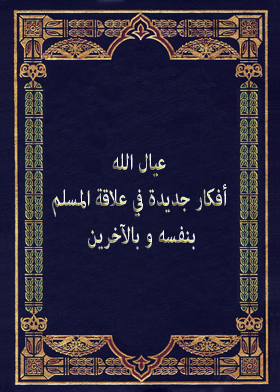 عيال الله
أفكار جديدة في علاقة المسلم
بنفسه و بالآخرين